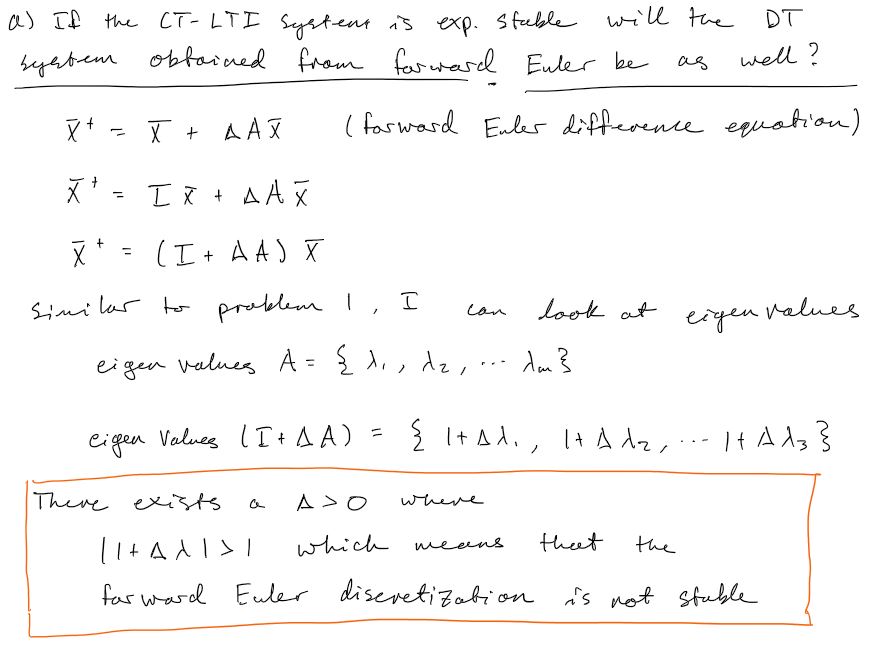 a) If the CT-LTI system is exp. stable will the DT
system obtained from forward Euler be as well?
x̄⁺ = x̄ + ΔAx̄ (forward Euler difference equation)
x̄⁺ = I x̄ + ΔA x̄
x̄⁺ = (I + ΔA) x̄
similar to problem 1, I can look at eigenvalues
eigen values A = { λ₁, λ₂, ... λₘ}
eigen values (I + ΔA) = { 1+Δλ₁, 1+Δλ₂, ... 1+Δλ₃ }
There exists a Δ > 0 where
|1+Δλ| > 1 which means that the
forward Euler discretization is not stable